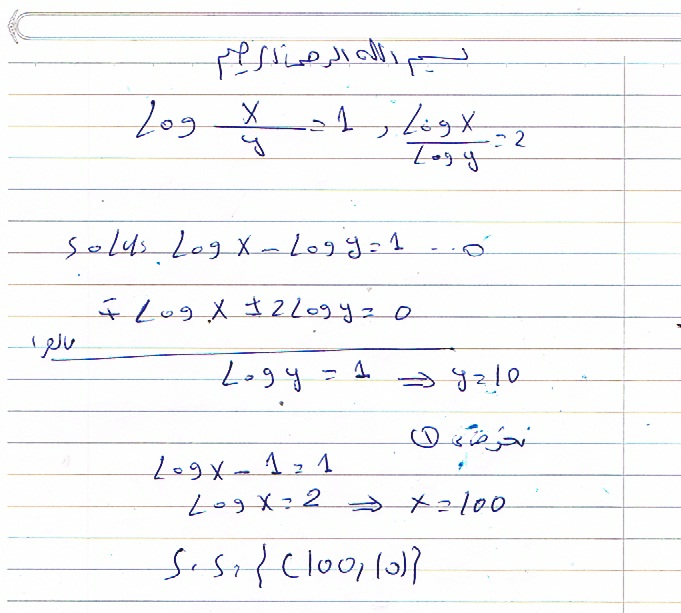 بسم الله الرحمن الرحيم
Log x/y = 1 , Log x / Log y = 2
Log x - Log y = 1 ...①
∓ Log x ± 2 Log y = 0
بالطرح
Log y = 1 ⇒ y = 10
نعوض في ①
Log x - 1 = 1
Log x = 2 ⇒ x = 100
S.S = {(100, 10)}